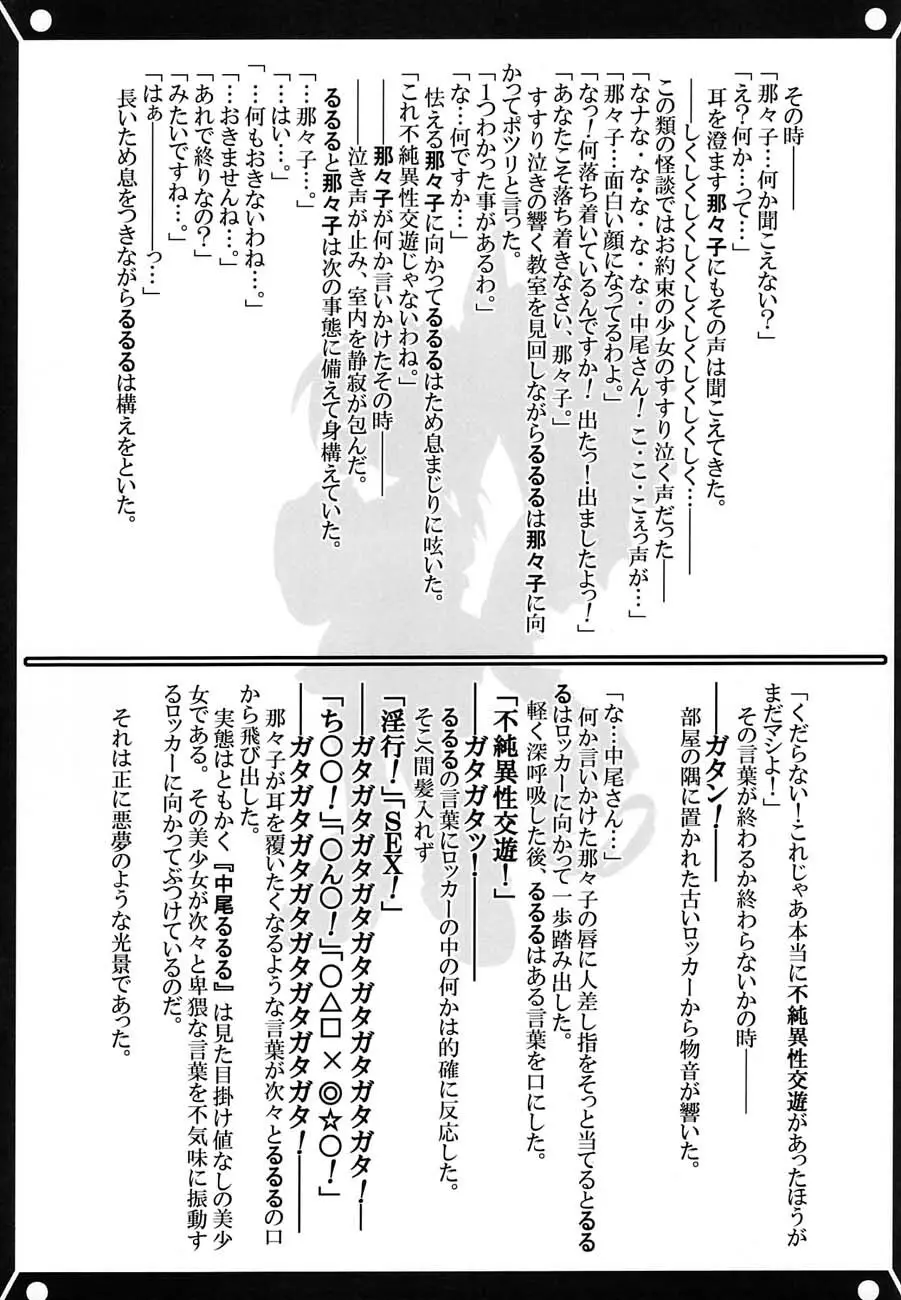 その時――――
「那々子…何か聞こえない？」
「え？何か…って…」
耳を澄ます那々子にもその声は聞こえてきた。
――――しくしくしくしくしくしくしくしく…――――
この類の怪談ではお約束の少女のすすり泣く声だった――
「なナな・な・な・な・な・中尾さん！こ・こ・こぇっ声が…」
「那々子…面白い顔になってるわよ。」
「なっ！何落ち着いているんですか！出たっ！出ましたよっ！」
「あなたこそ落ち着きなさい、那々子。」
すすり泣きの響く教室を見回しながらるるるは那々子に向
かってポツリと言った。
「１つわかった事があるわ。」
「な…何ですか…」
怯える那々子に向かってるるるはため息まじりに呟いた。
「これ不純異性交遊じゃないわね。」
――――那々子が何か言いかけたその時――――
――――泣き声が止み、室内を静寂が包んだ。
るるると那々子は次の事態に備えて身構えていた。
「…那々子…。」
「…はい…。」
「…何もおきないわね…。」
「…おきませんね…。」
「あれで終りなの？」
「みたいですね…。」
「はぁ――――――っ…」
長いため息をつきながらるるるは構えをといた。
「くだらない！これじゃあ本当に不純異性交遊があったほうが
まだマシよ！」
その言葉が終わるか終わらないかの時――――
――――ガタン！――――
部屋の隅に置かれた古いロッカーから物音が響いた。
「な…中尾さん…」
何か言いかけた那々子の唇に人差し指をそっと当てるとるる
るはロッカーに向かって一歩踏み出した。
軽く深呼吸した後、るるるはある言葉を口にした。
「不純異性交遊！」
――――ガタガタッ！――――
るるるの言葉にロッカーの中の何かは的確に反応した。
そこへ間髪入れず
「淫行！」「ＳＥＸ！」
――――ガタガタガタガタガタガタガタガタガタ！――――
「ち〇〇！」「〇ん〇！」「〇△□×◎☆〇！」
――――ガタガタガタガタガタガタガタガタガタ！――――
那々子が耳を覆いたくなるような言葉が次々とるるるの口
から飛び出した。
実態はともかく『中尾るるる』は見た目掛け値なしの美少
女である。その美少女が次々と卑猥な言葉を不気味に振動す
るロッカーに向かってぶつけているのだ。
それは正に悪夢のような光景であった。